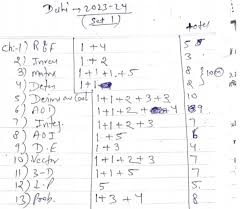 Delhi → 2023-24
(Set 1)
Ch:-1) R&F 1+4 5
2) Inver 1+2 3
3) Matrix 1+1+1+5 8
4) Deter 1+1 2
5) 1+1+2+3+3 10
6) AOD 1+1+2 9
7) Integ. 1+1+2+3 7
8) AOI 1+5 6
9) D.E 1+3 4
10) Vector 1+1+2+3 7
11) 3-D 1+1+5 7
12) L.P 5 5
13) Prob. 1+3+4 8